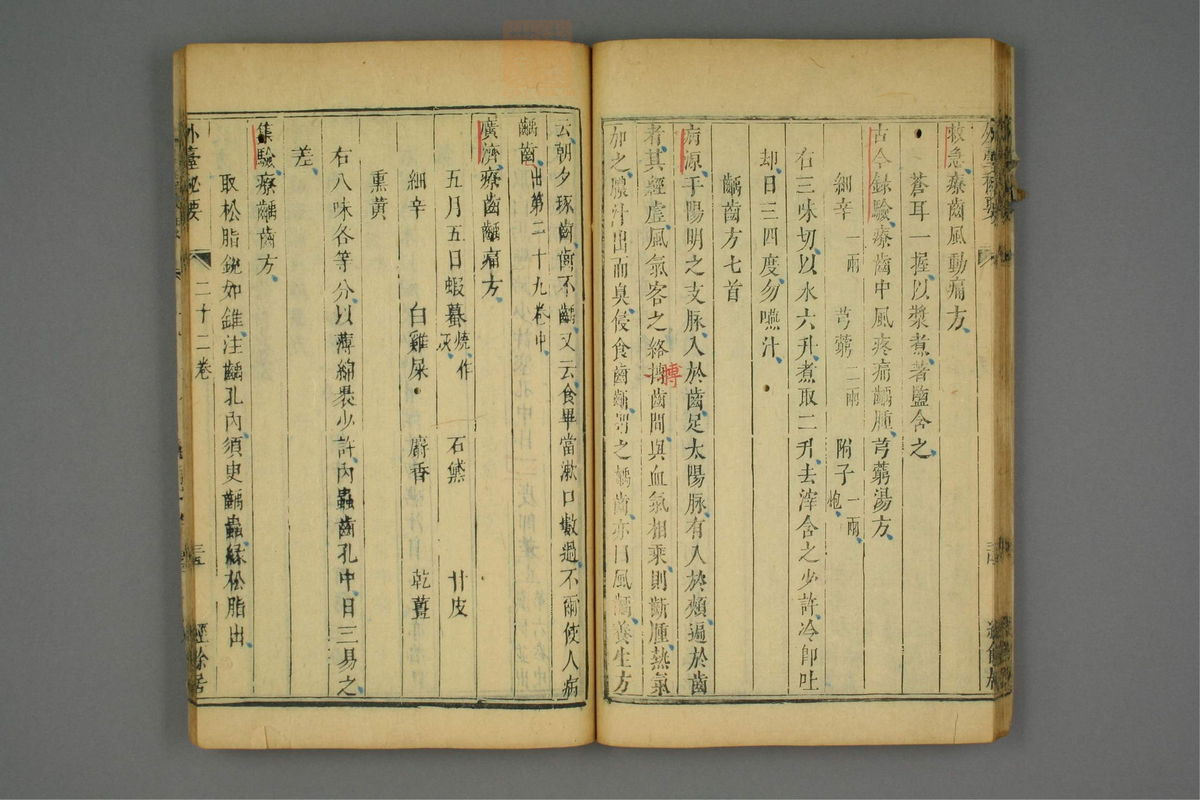 救急療齒風動痛方
蒼耳一握以漿煮著鹽含之
古今録驗療齒中風疼痛齲腫芎藭湯方
細辛一兩 芎藭二兩 附子一兩炮
右三味切以水六升煮取二升去滓含之少許冷即吐
却日三四度勿嚥汁
齲齒方七首
病源手陽明之支脉入於齒足太陽脉有入於頰遍於齒
者其經虛風氣客之絡搏齒間與血氣相乘則齗腫熱氣
搏
加之膿汁出而臭侵食齒齗謂之齲齒亦曰風齲養生方
云朝夕琢齒齒不齲又云食畢當漱口數過不爾使人病
齲齒出第二十九卷中
廣濟療齒齲痛方
五月五日蝦蟇燒作灰 石黛 甘皮
細辛 白雞屎 麝香 乾薑
熏黃
右八味各等分以薄綿裹少許內蟲齒孔中日三易之
差
集驗療齲齒方
取松脂銳如錐注齲孔內須臾齲蟲緣松脂出
外臺祕要 二十二卷 經餘居